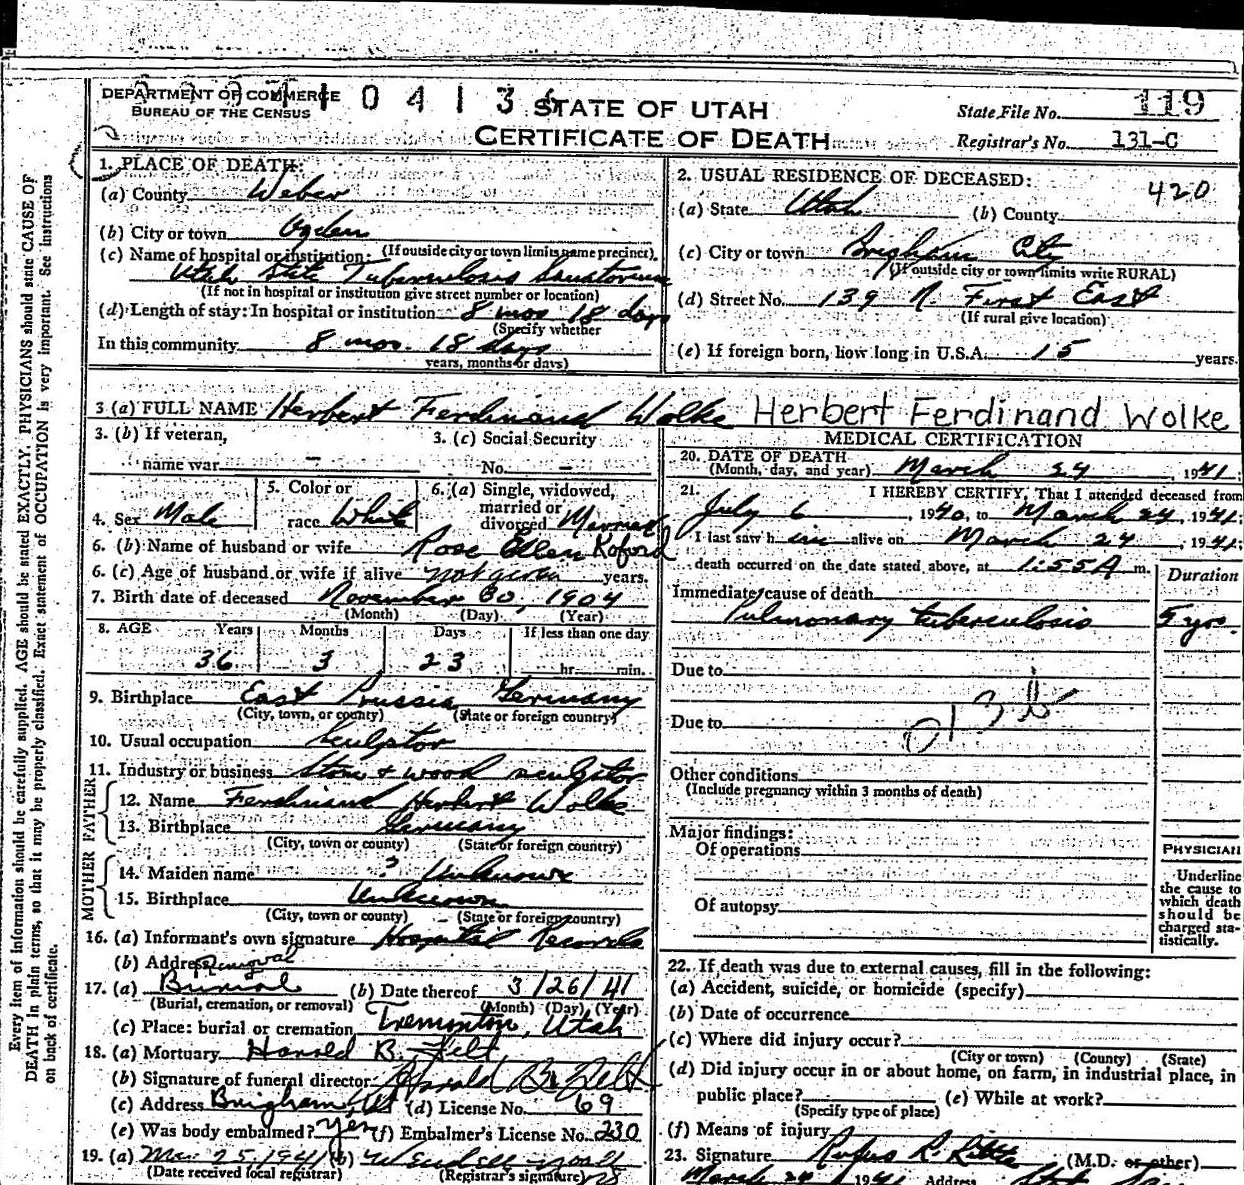 Every item of information should be carefully supplied. AGE should be stated EXACTLY. PHYSICIANS should state CAUSE OF
DEATH in plain terms, so that it may be properly classified. Exact statement of OCCUPATION is very important. See instructions
on back of certificate.
DEPARTMENT OF COMMERCE
BUREAU OF THE CENSUS
STATE OF UTAH
CERTIFICATE OF DEATH
State File No. 119
Registrar's No. 131-C
1. PLACE OF DEATH:
(a) County Weber
(b) City or town Ogden
(If outside city or town limits name precinct)
(c) Name of hospital or institution:
Utah State Tuberculosis Sanatorium
(If not in hospital or institution give street number or location)
(d) Length of stay: In hospital or institution 8 mos 18 days
(Specify whether
In this community 8 mos. 18 days
years, months or days)
2. USUAL RESIDENCE OF DECEASED:
420
(a) State Utah (b) County
(c) City or town Brigham City
(If outside city or town limits write RURAL)
(d) Street No. 139 N. First East
(If rural give location)
(e) If foreign born, how long in U.S.A. 15 years.
3 (a) FULL NAME Herbert Ferdinand Wolke Herbert Ferdinand Wolke
3. (b) If veteran,
name war –
3. (c) Social Security
No. –
4. Sex Male
5. Color or
race White
6. (a) Single, widowed,
married or
divorced Married
6. (b) Name of husband or wife Rose Ellen Koford
6. (c) Age of husband or wife if alive not given years.
7. Birth date of deceased November 30, 1904
(Month) (Day) (Year)
8. AGE Years Months Days If less than one day
36 3 23 hr. min.
9. Birthplace East Prussia Germany
(City, town, or county) (State or foreign country)
10. Usual occupation Sculptor
11. Industry or business Stone & wood sculptor
FATHER
12. Name Ferdinand Herbert Wolke
13. Birthplace Germany
(City, town or county) (State or foreign country)
MOTHER
14. Maiden name ? Unknown
15. Birthplace Unknown
(City, town or county) (State or foreign country)
16. (a) Informant's own signature Hospital Records
(b) Address
17. (a) Removal
Burial (b) Date thereof 3/26/41
(Burial, cremation, or removal) (Month) (Day) (Year)
(c) Place: burial or cremation Tremonton, Utah
18. (a) Mortuary Harold B. Felt
(b) Signature of funeral director Harold B. Felt
(c) Address Brigham, Ut (d) License No. 69
(e) Was body embalmed? yes (f) Embalmer's License No. 230
19. (a) Mar 25, 1941 (b)
(Date received local registrar) (Registrar's signature)
MEDICAL CERTIFICATION
20. DATE OF DEATH
(Month, day, and year) March 24, 1941;
21. I HEREBY CERTIFY, That I attended deceased from
July 6, 1940, to March 24, 1941;
I last saw him alive on March 24, 1941;
death occurred on the date stated above, at 1:55 A m.
Duration
Immediate cause of death
Pulmonary tuberculosis 5 yrs.
Due to
Due to
013 b
Other conditions
(Include pregnancy within 3 months of death)
Major findings:
Of operations
Of autopsy
PHYSICIAN
Underline
the cause to
which death
should be
charged sta-
tistically.
22. If death was due to external causes, fill in the following:
(a) Accident, suicide, or homicide (specify)
(b) Date of occurrence
(c) Where did injury occur?
(City or town) (County) (State)
(d) Did injury occur in or about home, on farm, in industrial place, in
public place? (e) While at work?
(Specify type of place)
(f) Means of injury
23. Signature Rufus R. (M.D. or other)
March 24 1941 Address